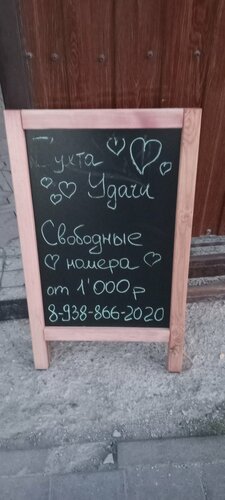 Бухта
Удачи
Свободные
номера
от 1'000р
8-938-866-2020